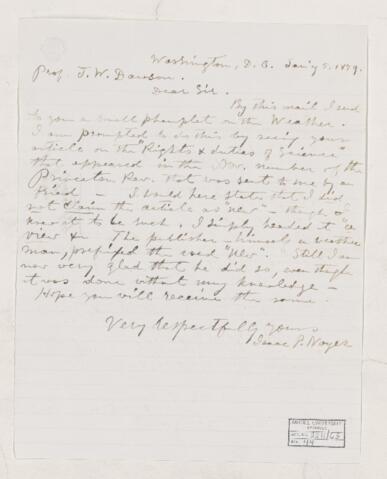 Washington, D. C. Jan'y 5, 1879.
Prof. J. W. Dawson.
Dear Sir.
By this mail I send
to you a small pamphlet on the Weather.
I am prompted to do this by seeing your
article on the "Rights & duties of Science"
that appeared in the Nov. number of the
Princeton Rev. that was sent to me by a
friend — I would here state that I did
not claim the article as new — though
meant to be such. I simply headed it "a
view &c The publisher himself a weather
man, prefixed the word "New". Still I am
now very glad that he did so, even though
it was done without my knowledge —
Hope you will receive the same —
Very Respectfully yours
Isaac P. Noyes
McGILL UNIVERSITY
ARCHIVES
ACC. NO.